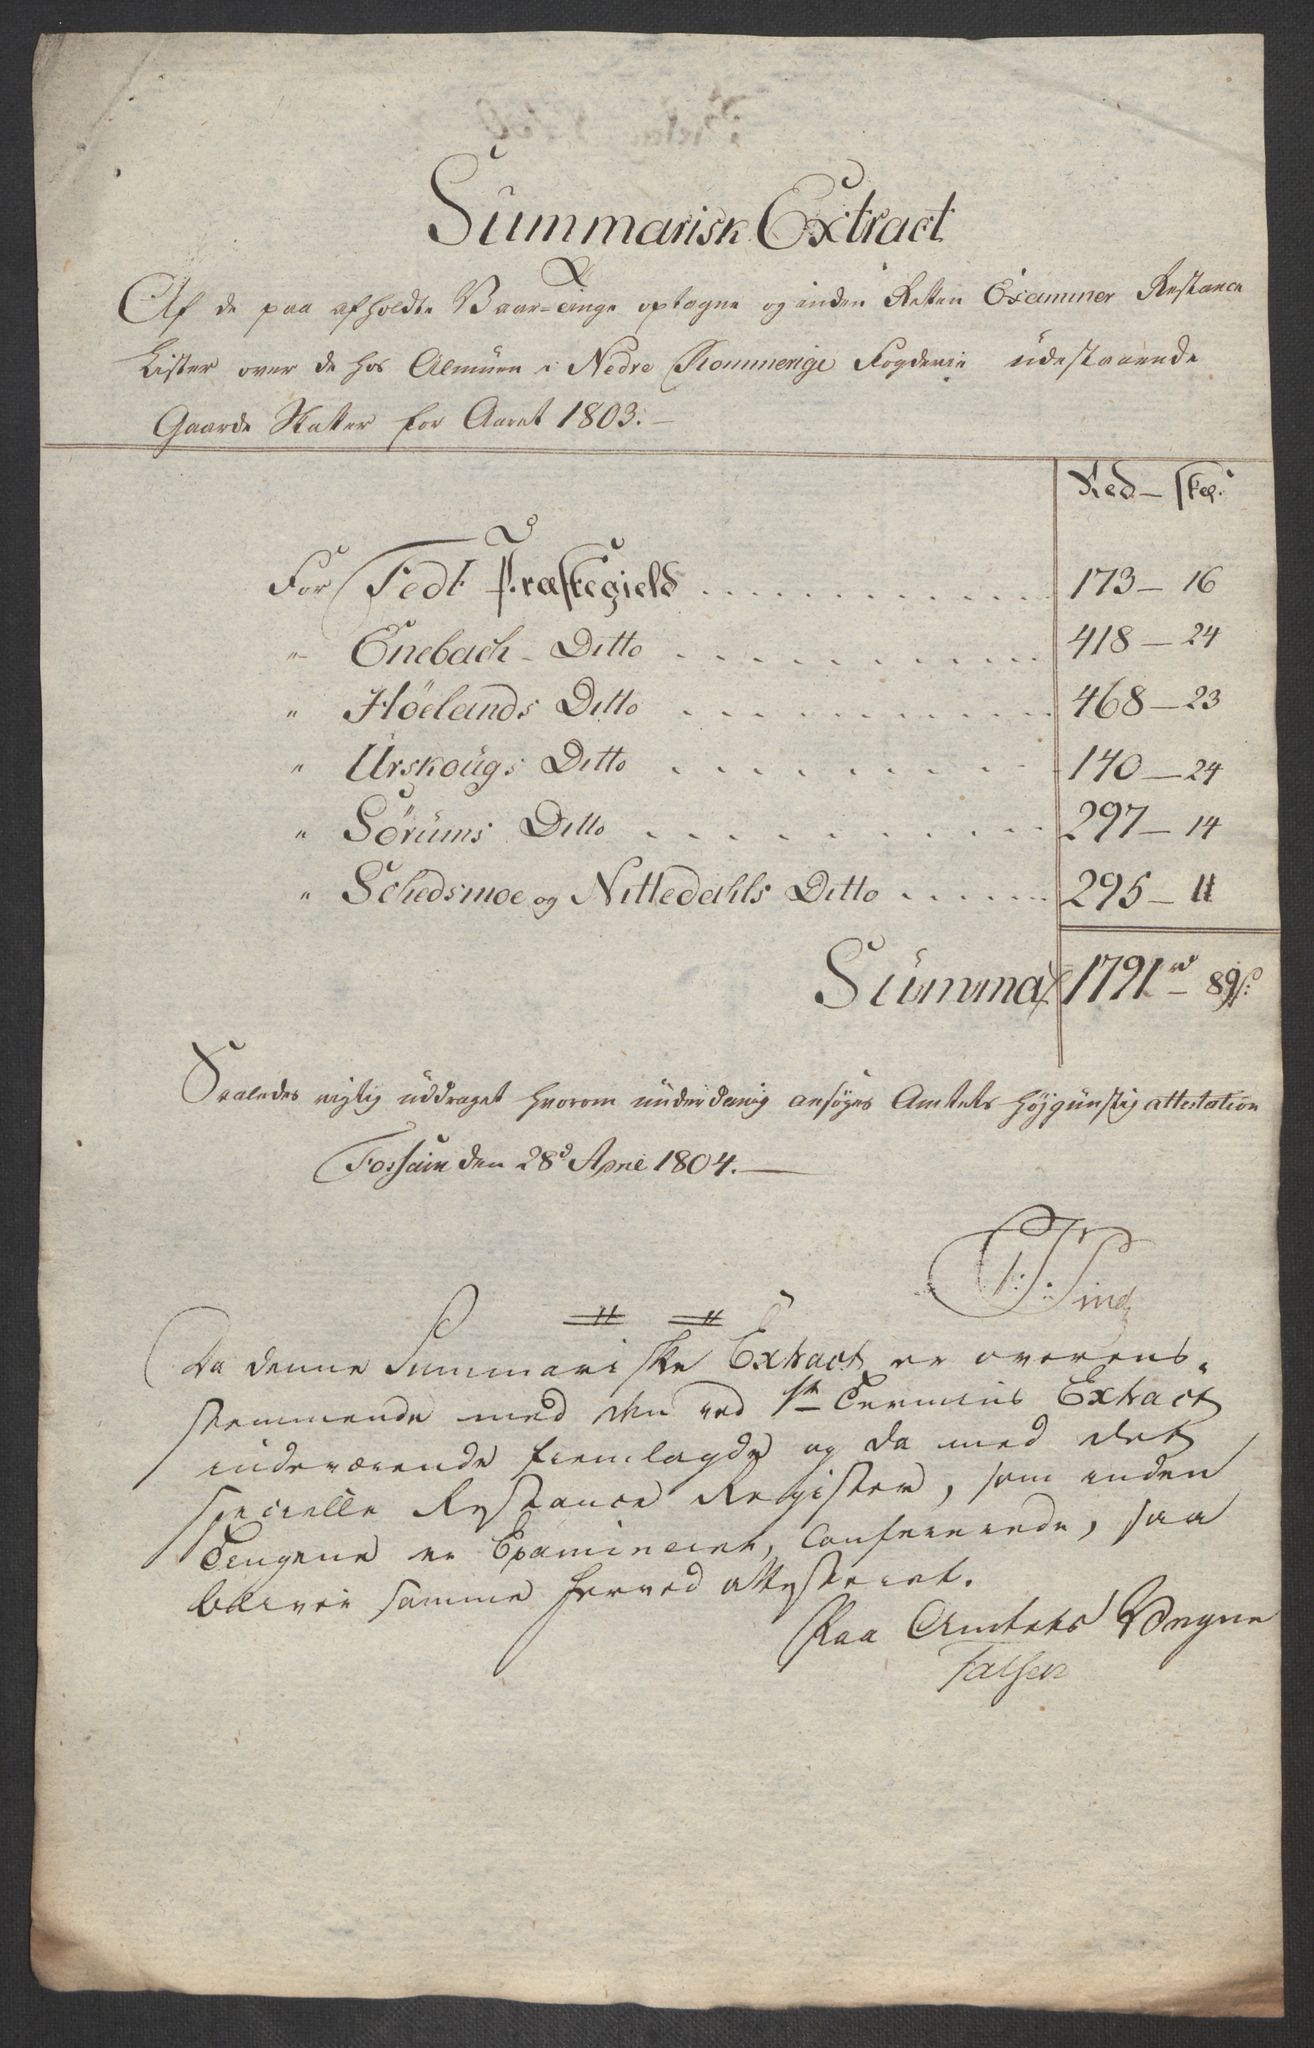 Summarisk Extract
Af de paa afholdte Vaar-Tinge optagne og inden Retten Examiner Restance
Lister over de hos Almüen i Nedre Rommerige Fogderie üdestaaende
Gaarde Skatter for Aaret 1803.—
Rd — sk
For Fedt Præstegield . . . . . . . . . . . . 173 — 16
" Enebach - Ditto . . . . . . . . . . 418 — 24
" Höelands Ditto . . . . . . . . . . 468 — 23
" Urskougs Ditto . . . . . . . . . 140 — 24
" Sörüms Ditto . . . . . . . . . . 297 — 14
" Schedsmoe og Nittedahls Ditto . . . . . . 295 — 11
Summa 1791 rd — 89 s:
Saaledes rigtig üddraget hvorom ünderdanig ansöges Amtets höjgünstig attestation
den 28d Apríl 1804.—
Da denne Summariske Extract er overens-
stemmende med den ved 1ste Termins Extract
indeværende fremlagde og da med det
specielle Restance Register, som inden
Tingene er Examineret, Confererede, saa
bliver samme herved attesteret.
Paa Amtets Vegne
Falsen